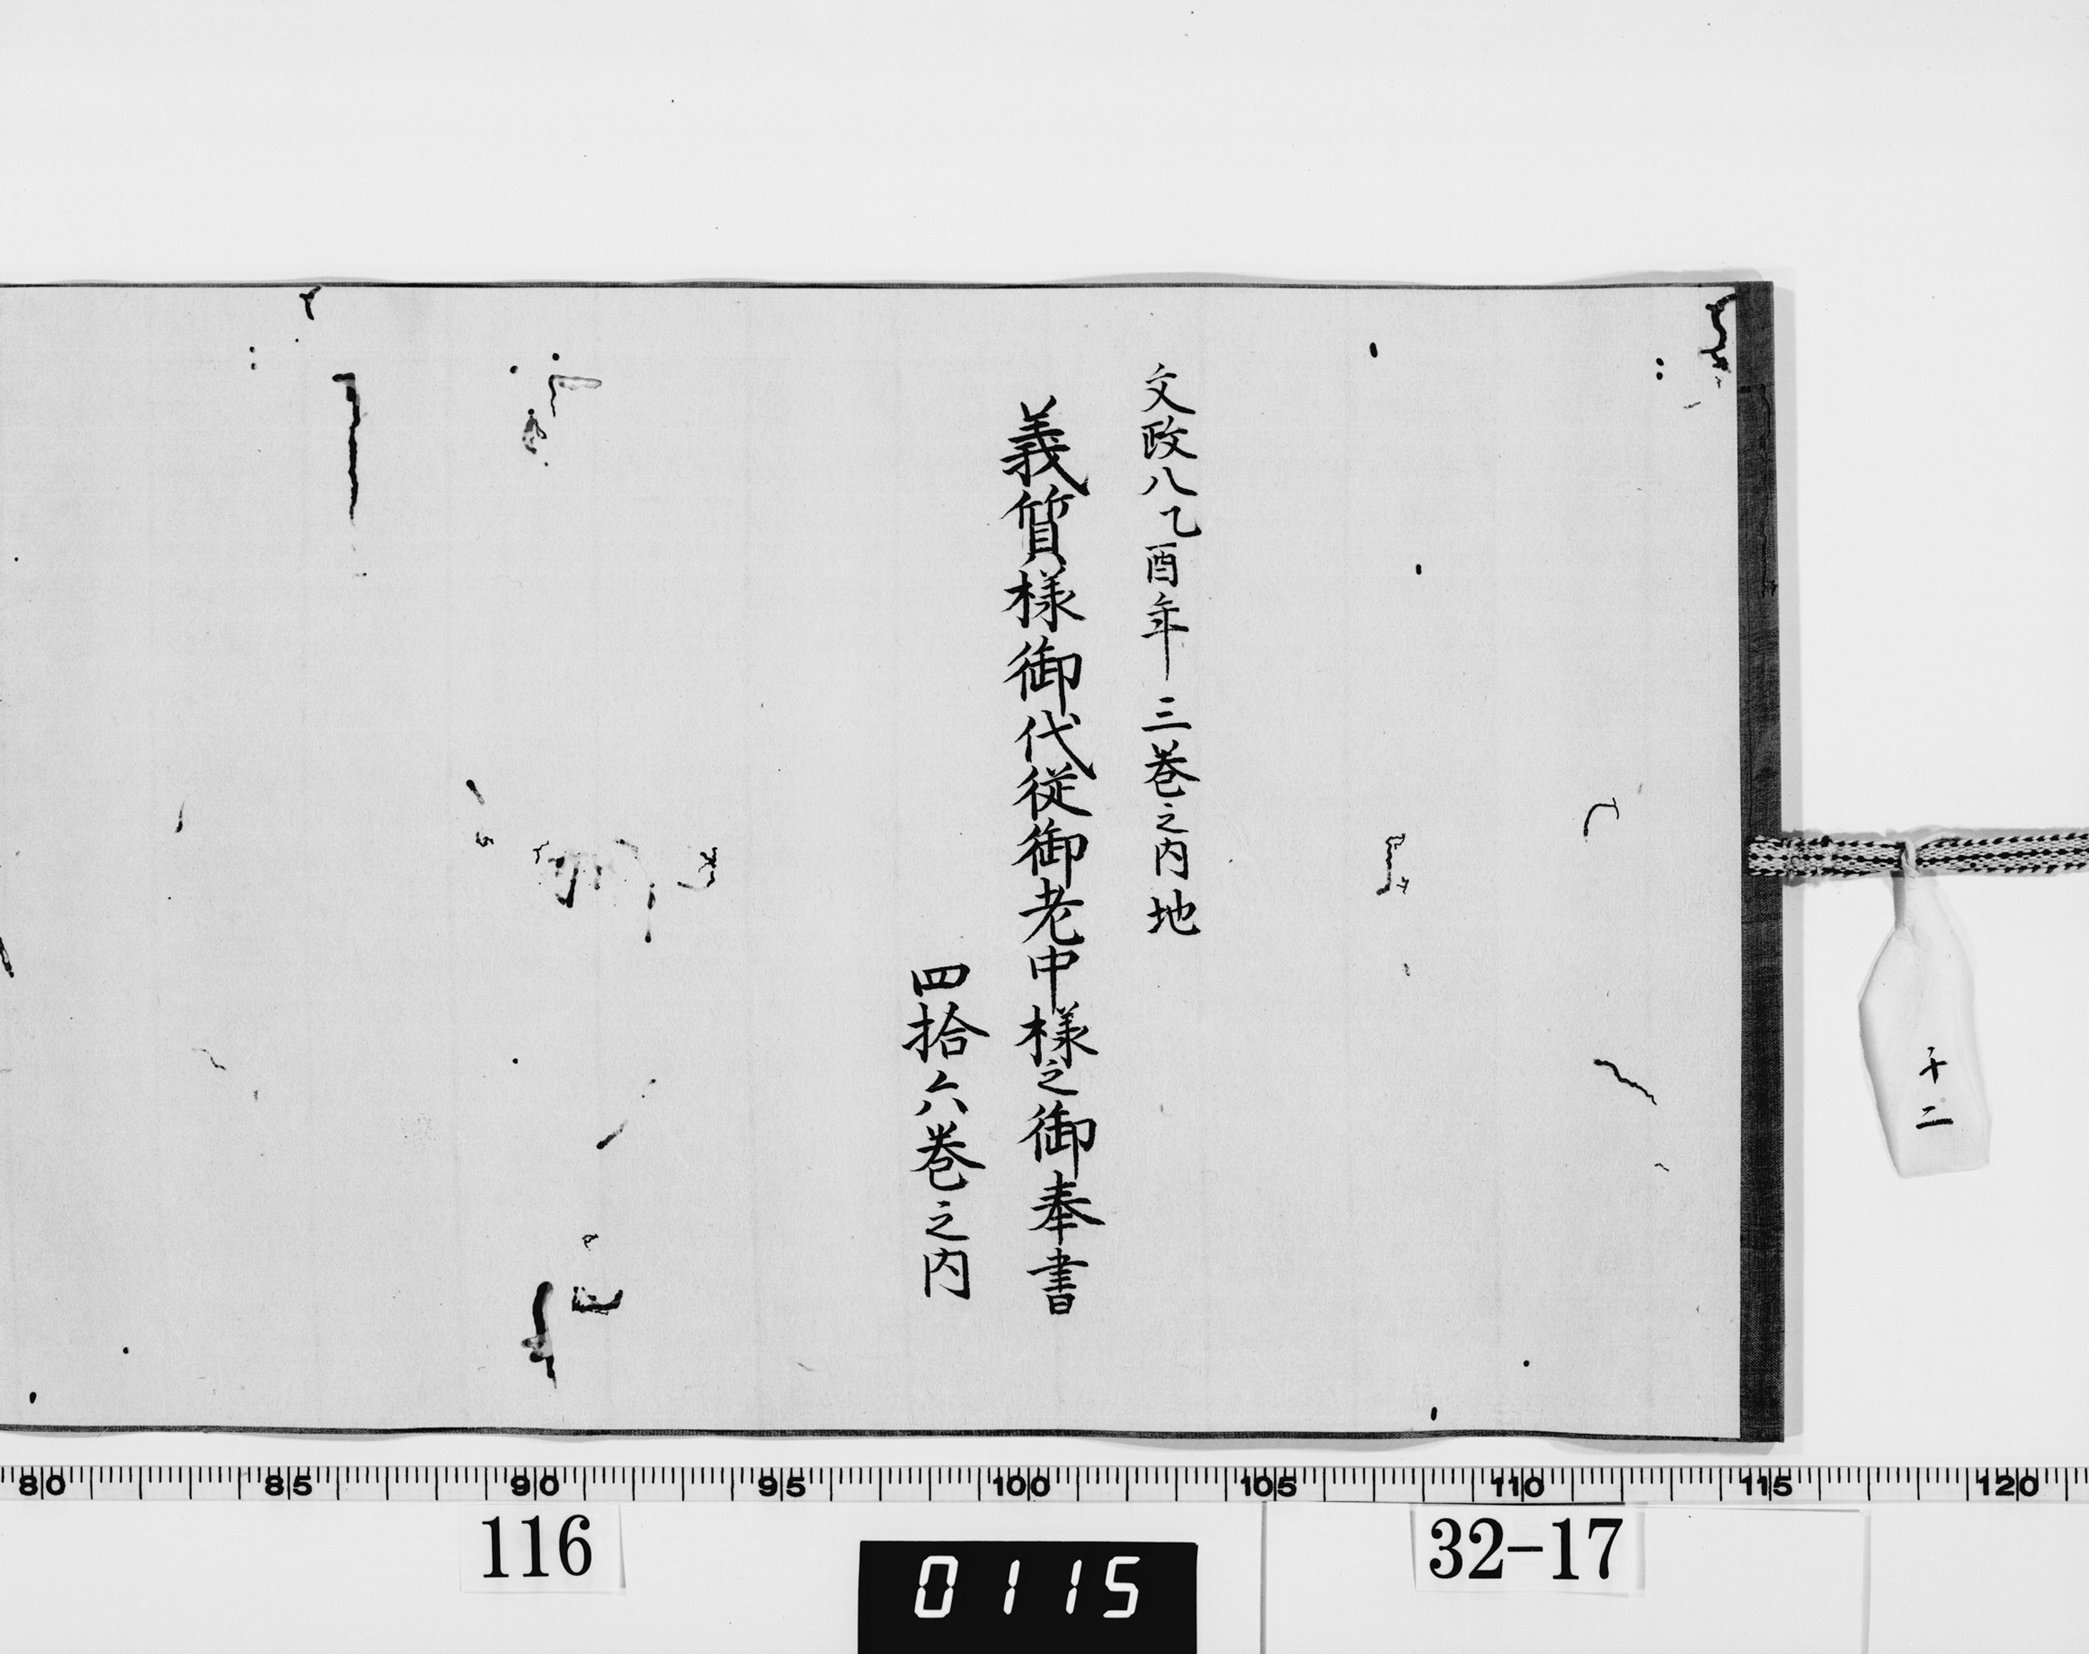 十二
文政八乙酉年 三巻之内 地
義質様御代従御老中様之御奉書
四拾六巻之内
80 85 90 95 100 105 110 115 120
116
0115
32-17